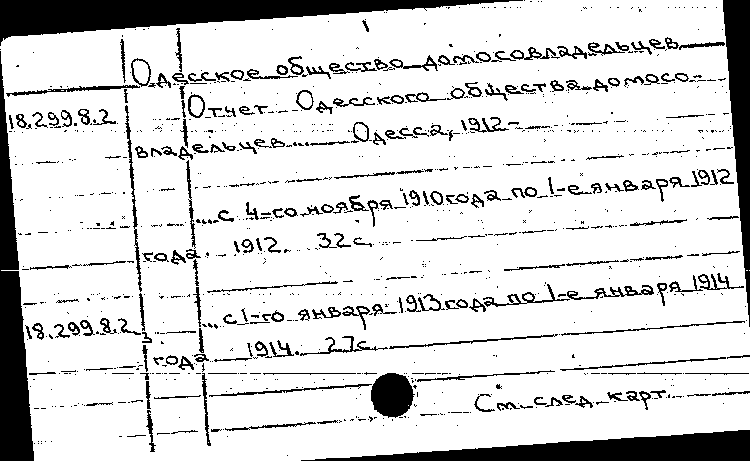 1
Одесское общество домосовладельцев
18.299.8.2 Отчет Одесского общества домосо-
владельцев.... Одесса, 1912-
...с 4-го ноября 1910 года по 1-е января 1912
года. 1912. 32 с.
18.299.8.2 ...с 1-го января 1913 года по 1-е января 1914
3
года 1914. 27 с.
См. след. карт.